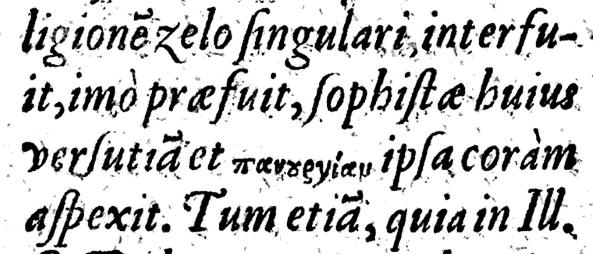 ligionē zelo ſingulari, interfu-
it, imò præfuit, ſophiſtæ huius
verſutiā et πανȣργίαν ipſa coràm
aſpexit. Tum etiā, quia in Ill.